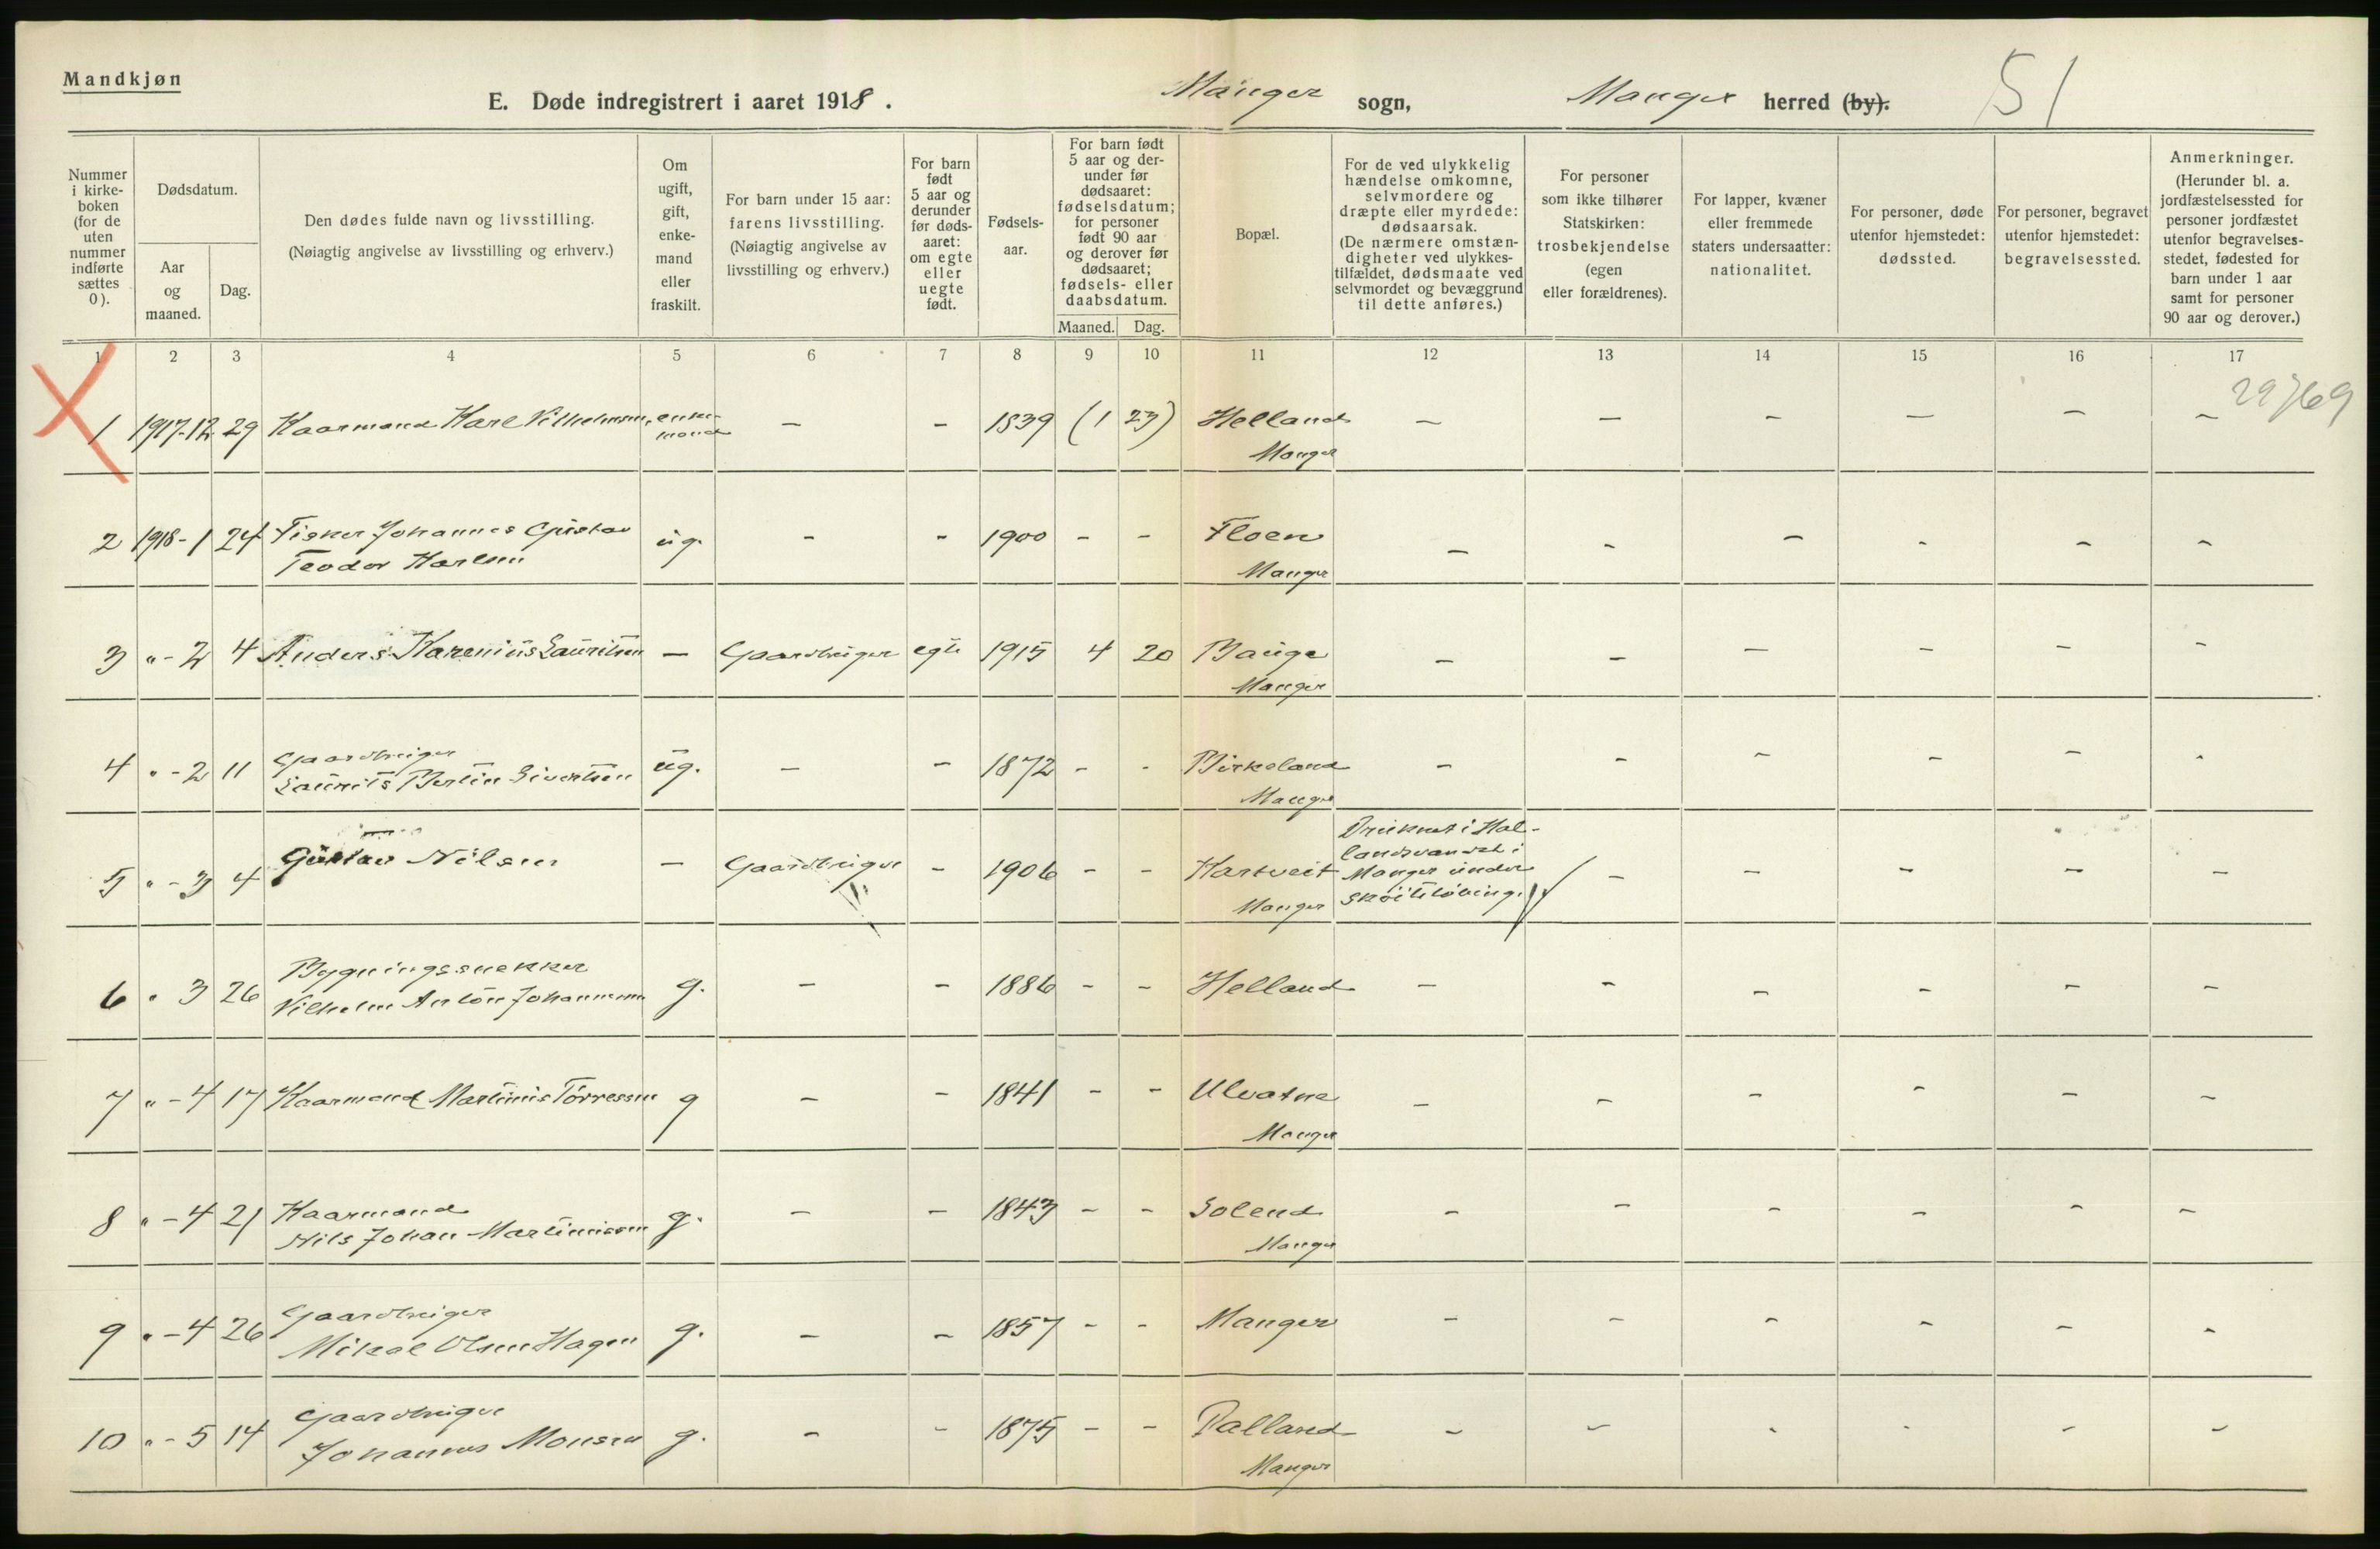 Mandkjøn
E. Døde indregistrert i aaret 1918.
Manger sogn,
Manger herred (by).
51
Nummer i kirke-boken (for de uten nummer indførte sættes 0).
Dødsdatum.
Aar og maaned.
Dag.
Den dødes fulde navn og livsstilling.
(Nøiagtig angivelse av livsstilling og erhverv.)
Om ugift, gift, enke-mand eller fraskilt.
For barn under 15 aar: farens livsstilling.
(Nøiagtig angivelse av livsstilling og erhverv.)
For barn født 5 aar og derunder før døds-aaret: om egte eller uegte født.
Fødsels-aar.
For barn født 5 aar og der-under før dødsaaret: fødselsdatum; for personer født 90 aar og derover før dødsaaret; fødsels- eller daabsdatum.
Maaned. Dag.
Bopæl.
For de ved ulykkelig hændelse omkomne, selvmordere og dræpte eller myrdede: dødsaarsak.
(De nærmere omstæn-digheter ved ulykkes-tilfældet, dødsmaate ved selvmordet og bevæggrund til dette anføres.)
For personer som ikke tilhører Statskirken: trosbekjendelse (egen eller forældrenes).
For lapper, kvæner eller fremmede staters undersaatter: nationalitet.
For personer, døde utenfor hjemstedet: dødssted.
For personer, begravet utenfor hjemstedet: begravelsessted.
Anmerkninger.
(Herunder bl. a. jordfæstelsessted for personer jordfæstet utenfor begravelses-stedet, fødested for barn under 1 aar samt for personer 90 aar og derover.)
1 2 3 4 5 6 7 8 9 10 11 12 13 14 15 16 17
29769
1 1917-12 29 Kaarmand Karl Vilhelmsen, enke-mand - - 1839 (1 23) Helland Manger - - - - - -
2 1918-1 24 Fisker Johannes Gustav Teodor Karlsen ug. - - 1900 - - Floen Manger - - - - - -
3 " - 2 4 Anders Karenius Lauritsen - Gaardbruger egte 1915 4 20 Bauge Manger - - - - - -
4 " - 2 11 Gaardbruger Laurits Bertin Sivertsen ug. - - 1872 - - Birkeland Manger - - - - - -
5 " - 3 4 Gustav Nilsen - Gaardbruger - 1906 - - Kartveit Manger Druknet i Hal-landsvandet i Manger under skøiteløbing. - - - - -
6 " 3 26 Bygningssnekker Vilhelm Anton Johannessen g. - - 1886 - - Helland - - - - - -
7 " - 4 17 Kaarmand Martinus Torressen g - - 1841 - - Ulvatne Manger - - - - - -
8 " - 4 21 Kaarmand Nils Johan Martinussen g. - - 1843 - - Solend Manger - - - - - -
9 " - 4 26 Gaardbruger Mikal Olsen Hagen g. - - 1857 - - Manger - - - - - -
10 " - 5 14 Gaardbruger Johannes Monsen g. - - 1875 - - Dalland Manger - - - - - -